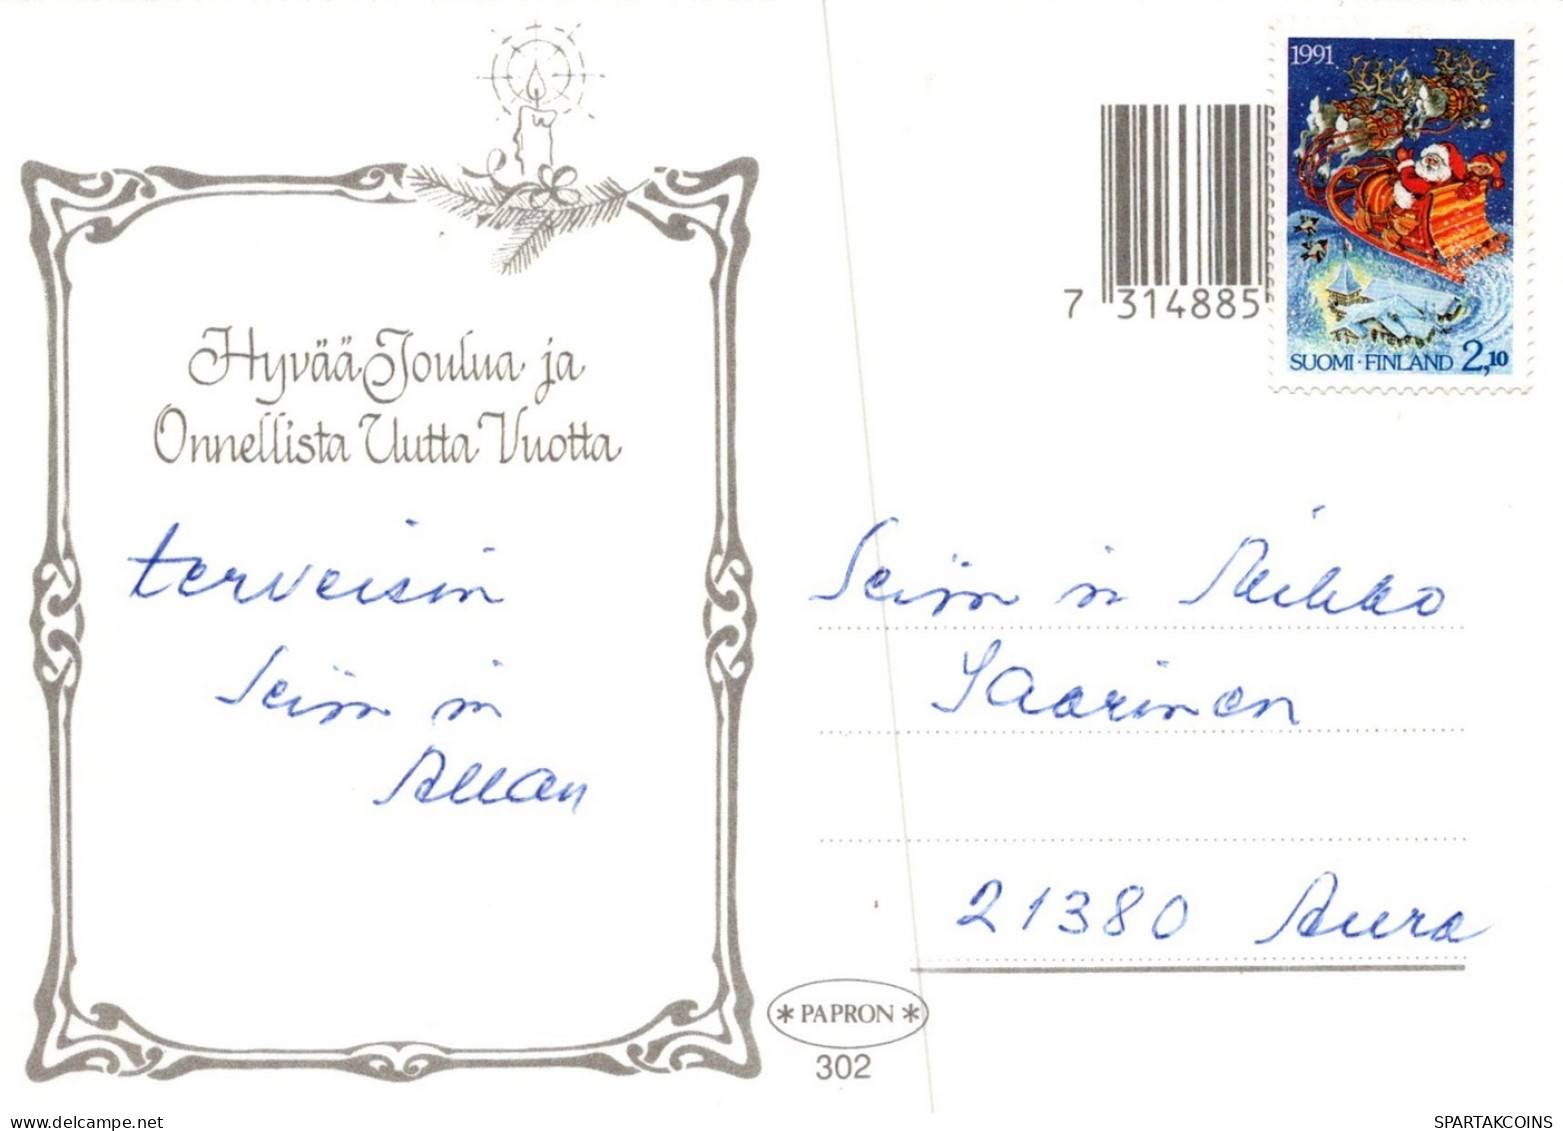 Hyvää Joulua ja
Onnellista Uutta Vuotta
terveisin
Allan
1991
SUOMI · FINLAND 2,10
7 314885
Saarinen
21380 Aura
* PAPRON *
302
delcampe.net
SPARTAKCOINS